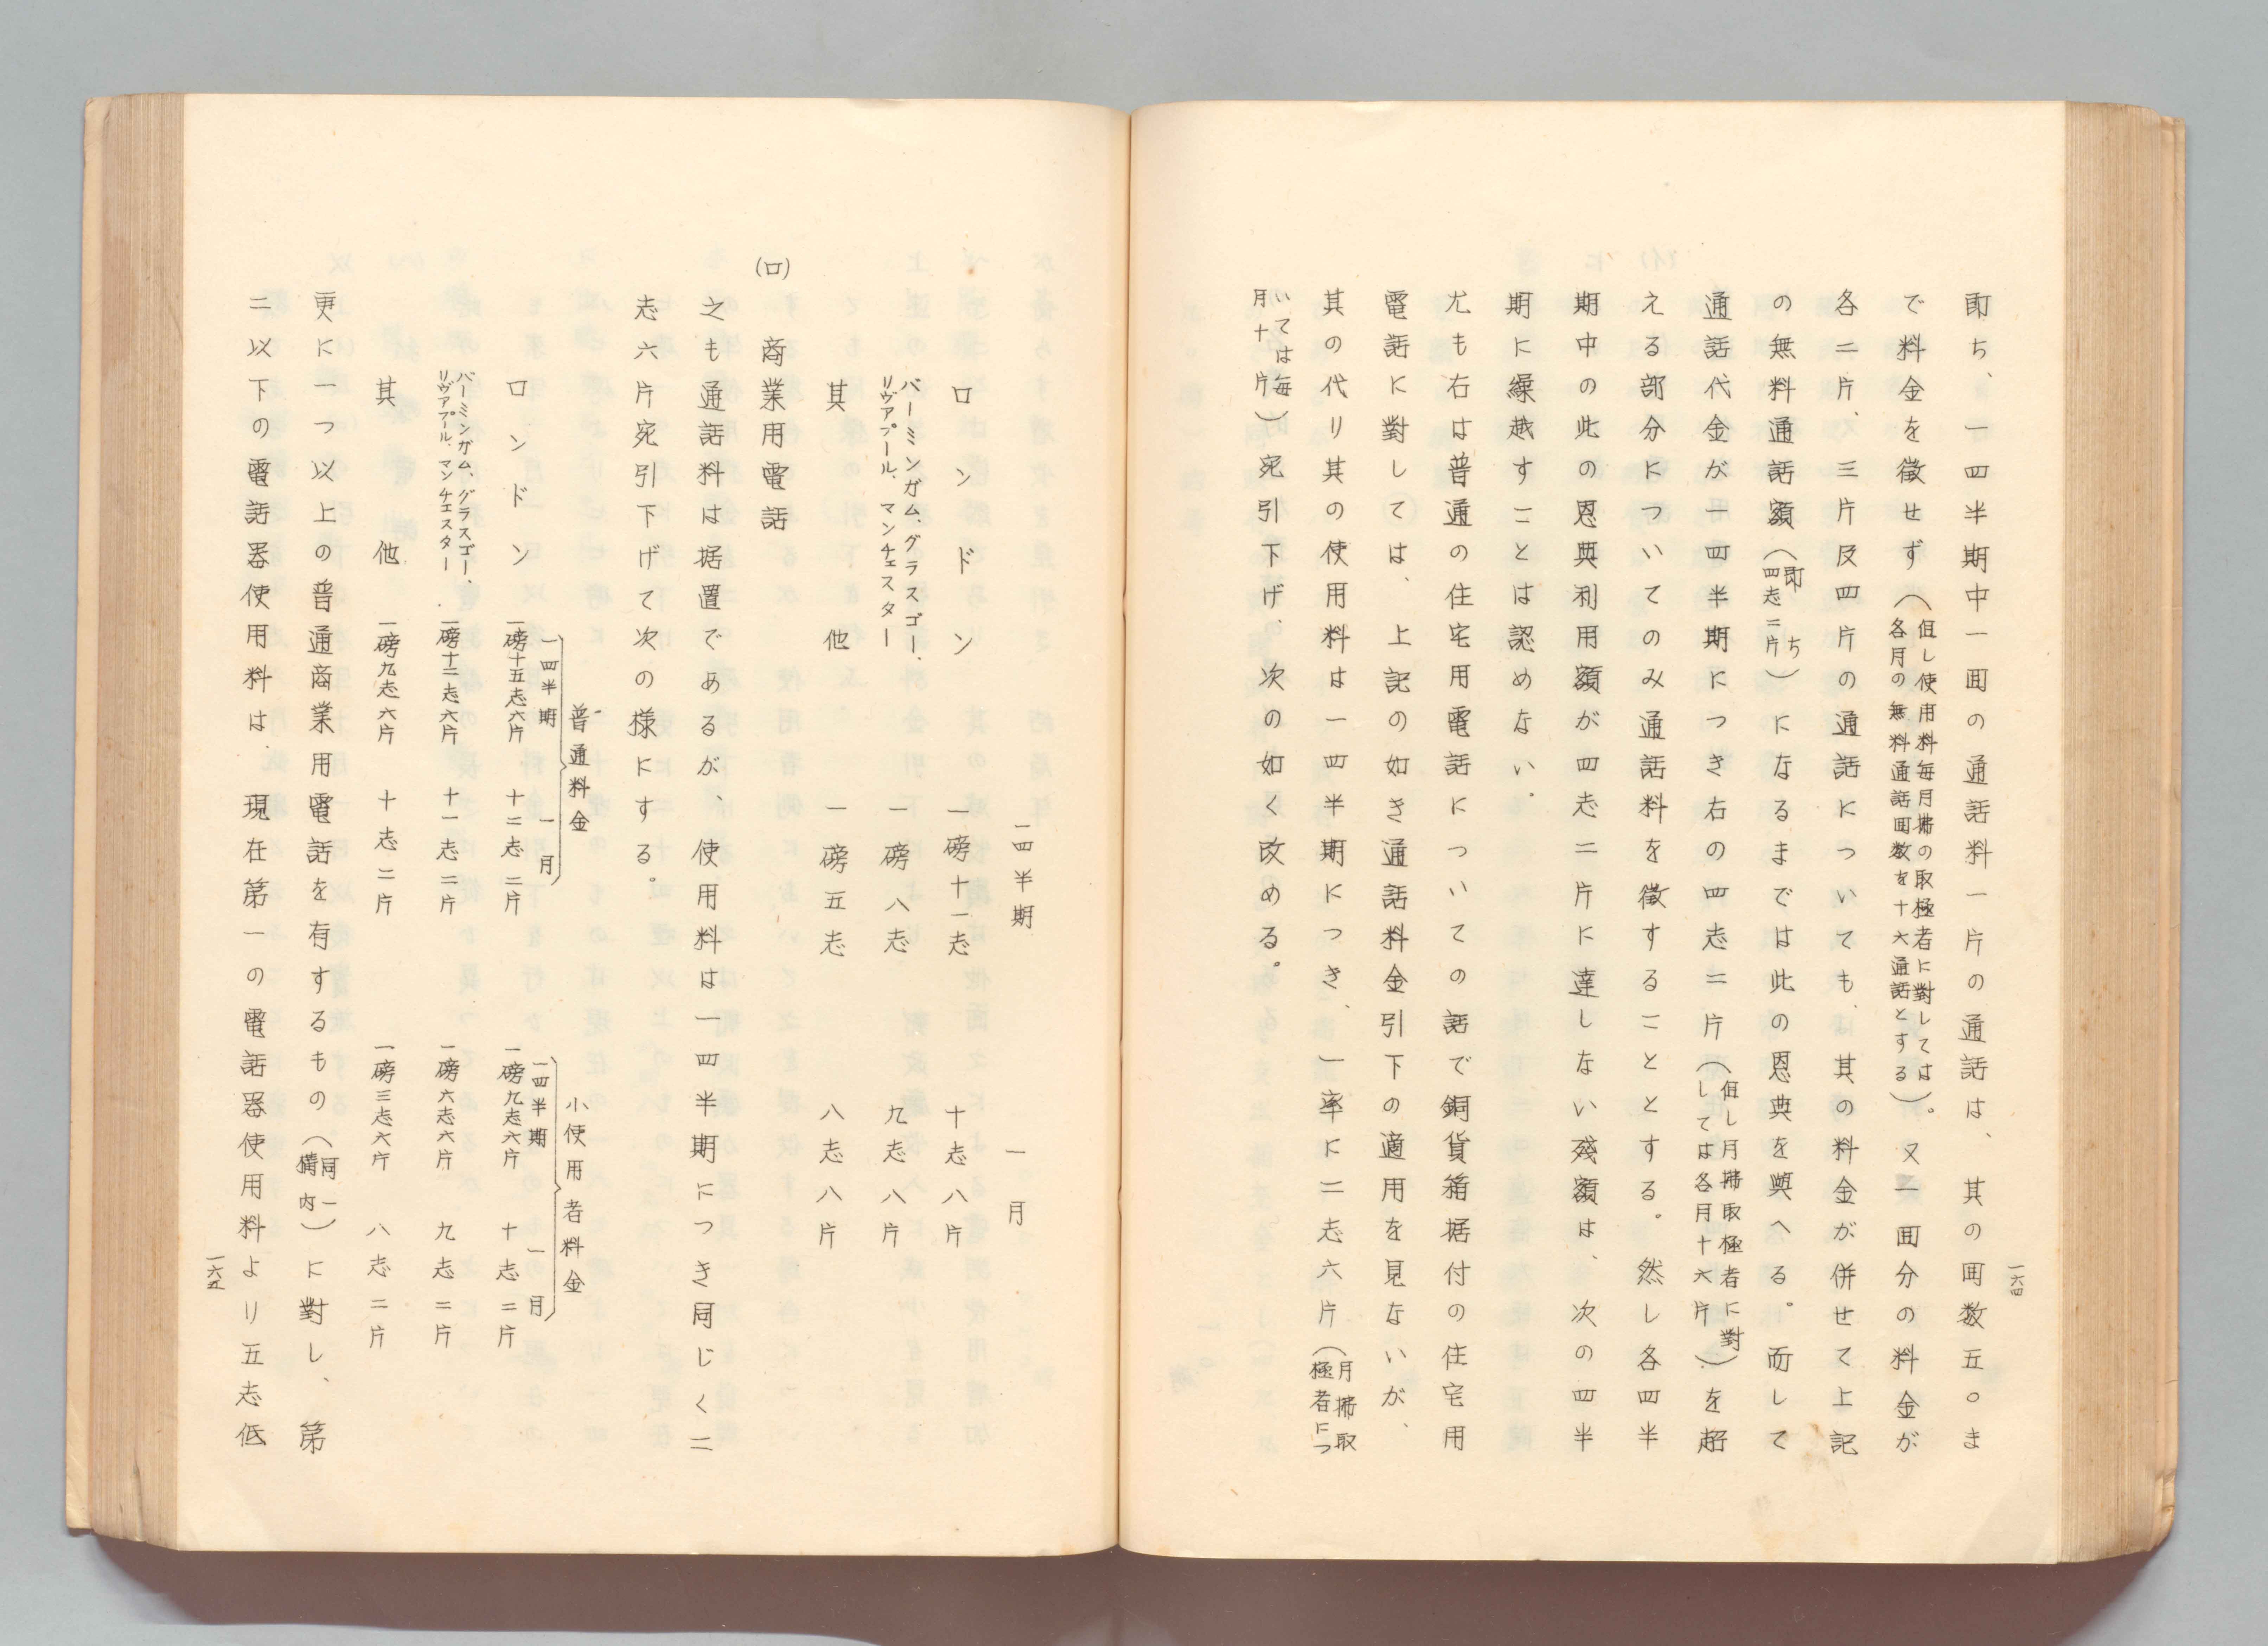 一六四
卽ち、一四半期中一回の通話料一片の通話は、其の回数五〇ま
で料金を徴せず（但し使用料毎月拂の取極者に對しては、各月の無料通話回数を十六通話とする）。又二回分の料金が
各二片、三片及四片の通話についても、其の料金が併せて上記
の無料通話額（卽ち四志二片）になるまでは此の恩典を與へる。而して
通話代金が一四半期につき右の四志二片（但し月拂取極者に對しては各月十六片）を超
える部分についてのみ通話料を徴することとする。然し各四半
期中の此の恩典利用額が四志二片に達しない残額は、次の四半
期に繰越すことは認めない。
尤も右は普通の住宅用電話についての話で銅貨箱据付の住宅用
電話に對しては、上記の如き通話料金引下の適用を見ないが、
其の代リ其の使用料は一四半期につき、一率に二志六片（月拂取極者につ
いては毎月十片）宛引下げ、次の如く改める。
一四半期　一月
ロンドン　一磅十一志　十志八片
バーミンガム、グラスゴー、リヴァプール、マンチェスター　一磅八志　九志八片
其他　一磅五志　八志八片
(ロ)　商業用電話
之も通話料は据置であるが、使用料は一四半期につき同じく二
志六片宛引下げて次の様にする。
普通料金　小使用者料金
一四半期　一月　一四半期　一月
ロンドン　一磅十五志六片　十二志二片　一磅九志六片　十志二片
バーミンガム、グラスゴー、リヴァプール、マンチェスター　一磅十二志六片　十一志二片　一磅六志六片　九志二片
其他　一磅九志六片　十志二片　一磅三志六片　八志二片
更に一つ以上の普通商業用電話を有するもの（同一構内）に對し、第
二以下の電話器使用料は、現在第一の電話器使用料よリ五志低
一六五